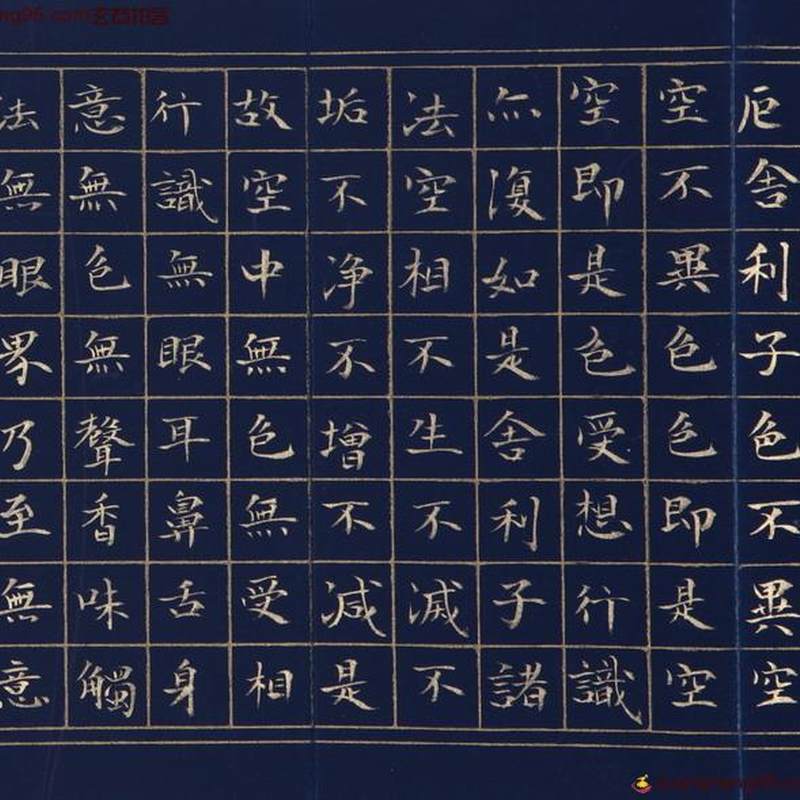 厄舍利子色不異空
空不異色色即是空
空即是色受想行識
亦復如是舍利子諸
法空相不生不滅不
垢不净不增不減是
故空中無色無受相
行識無眼耳鼻舌身
意無色無聲香味觸
法無眼界乃至無意